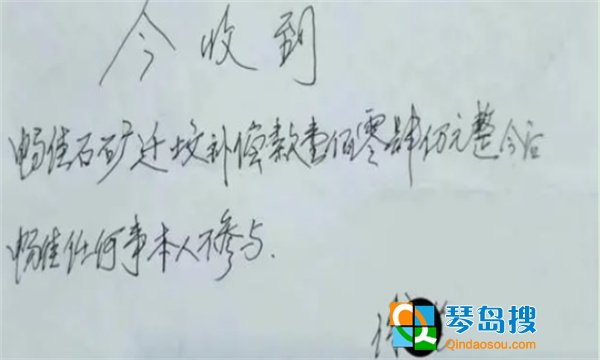 今收到
畅佳石矿迁坟补偿款壹佰零肆万元整今后
畅佳任何事本人不参与.
琴岛搜
Qindaosou.com